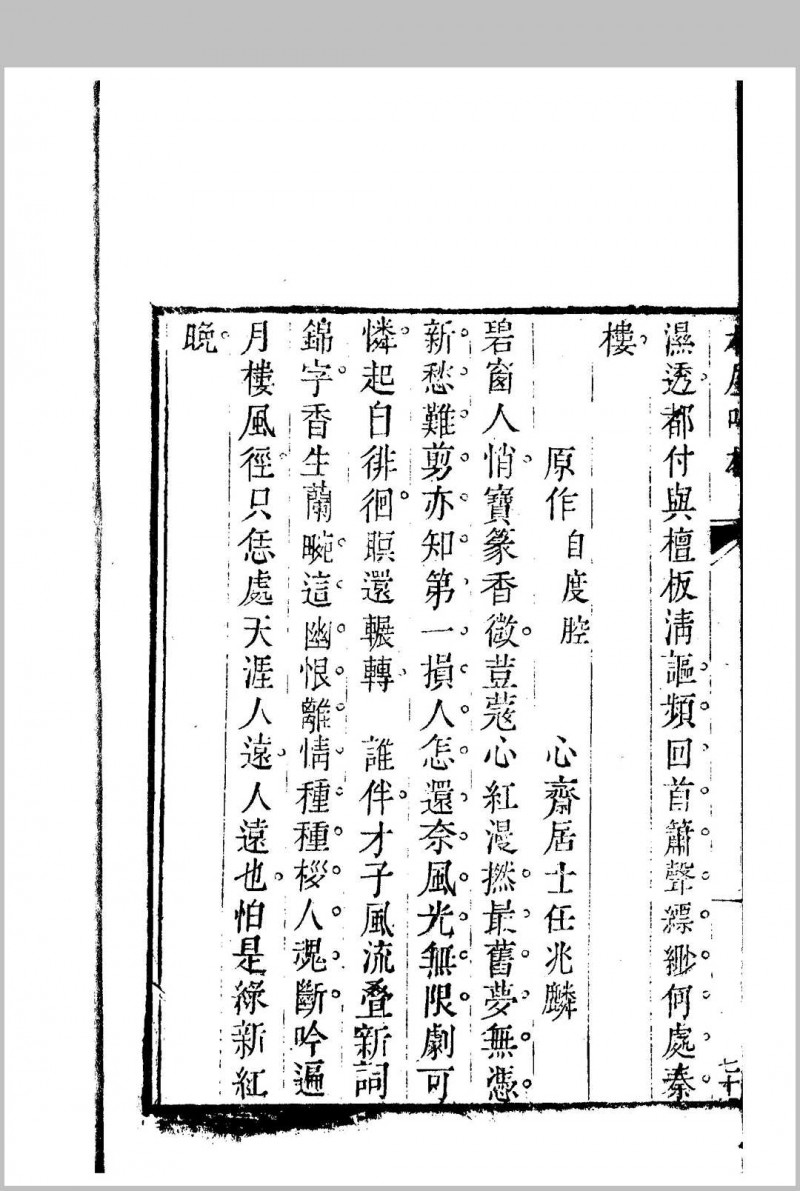 濕透都付與檀板淸謳頻回首簫聲縹緲何處秦
樓
原作自度腔 心齋居士任兆麟
碧窗人悄寶篆香微荳蔻心紅漫撚最舊夢無憑
新愁難剪亦知第一損人怎還奈風光無限劇可
憐起自徘徊瞑還輾轉 誰伴才子風流疊新詞
錦字香生蘭畹這幽恨離情種種椤人魂斷吟遍
月樓風徑只恁處天涯人遠人遠也怕是綠新紅
晚